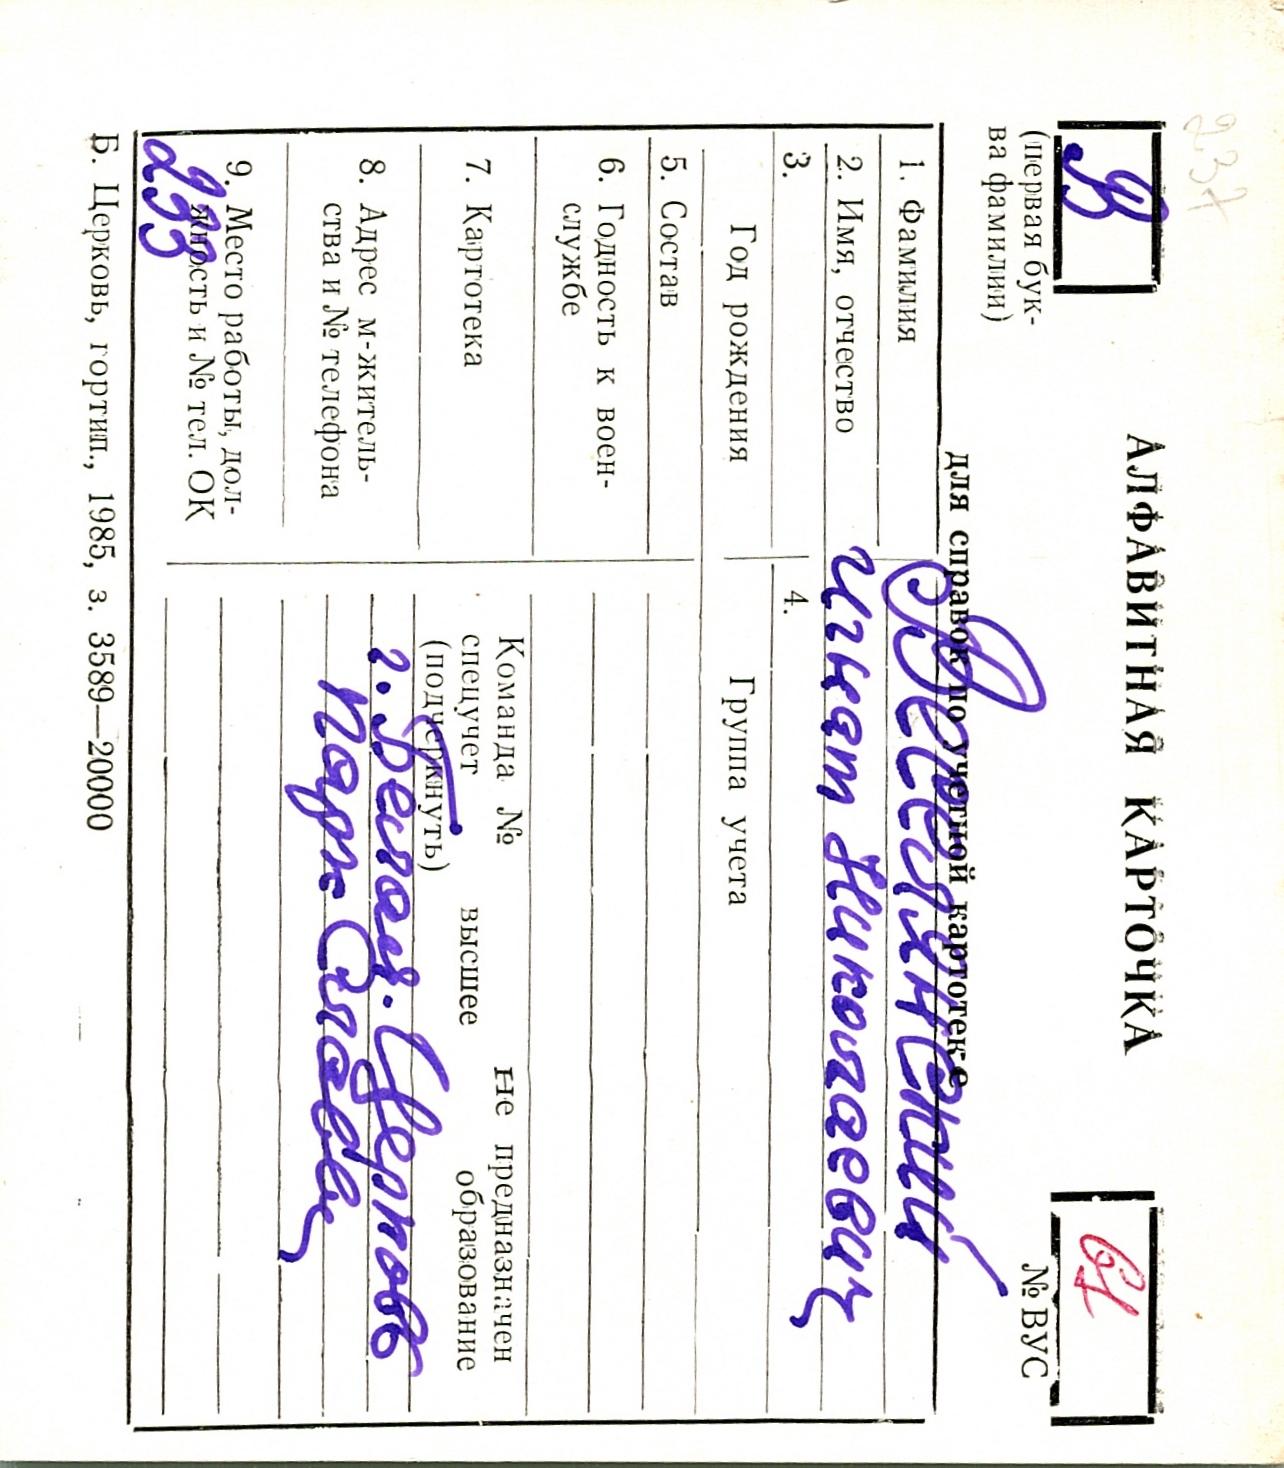 237
В
(первая бук-
ва фамилии)
АЛФАВИТНАЯ КАРТОЧКА
для справок по учетной картотеке
61
№ ВУС
1. Фамилия
Велянский
2. Имя, отчество
Игнат Николаевич
3.
Год рождения
4.
Группа учета
5. Состав
6. Годность к воен-
службе
7. Картотека
Команда № не предназначен
спецучет высшее образование
(подчеркнуть)
8. Адрес м-житель-
ства и № телефона
г. Белая. Церковь
9. Место работы, дол-
жность и № тел. ОК
233
Б. Церковь, гортип., 1985, з. 3589—20000